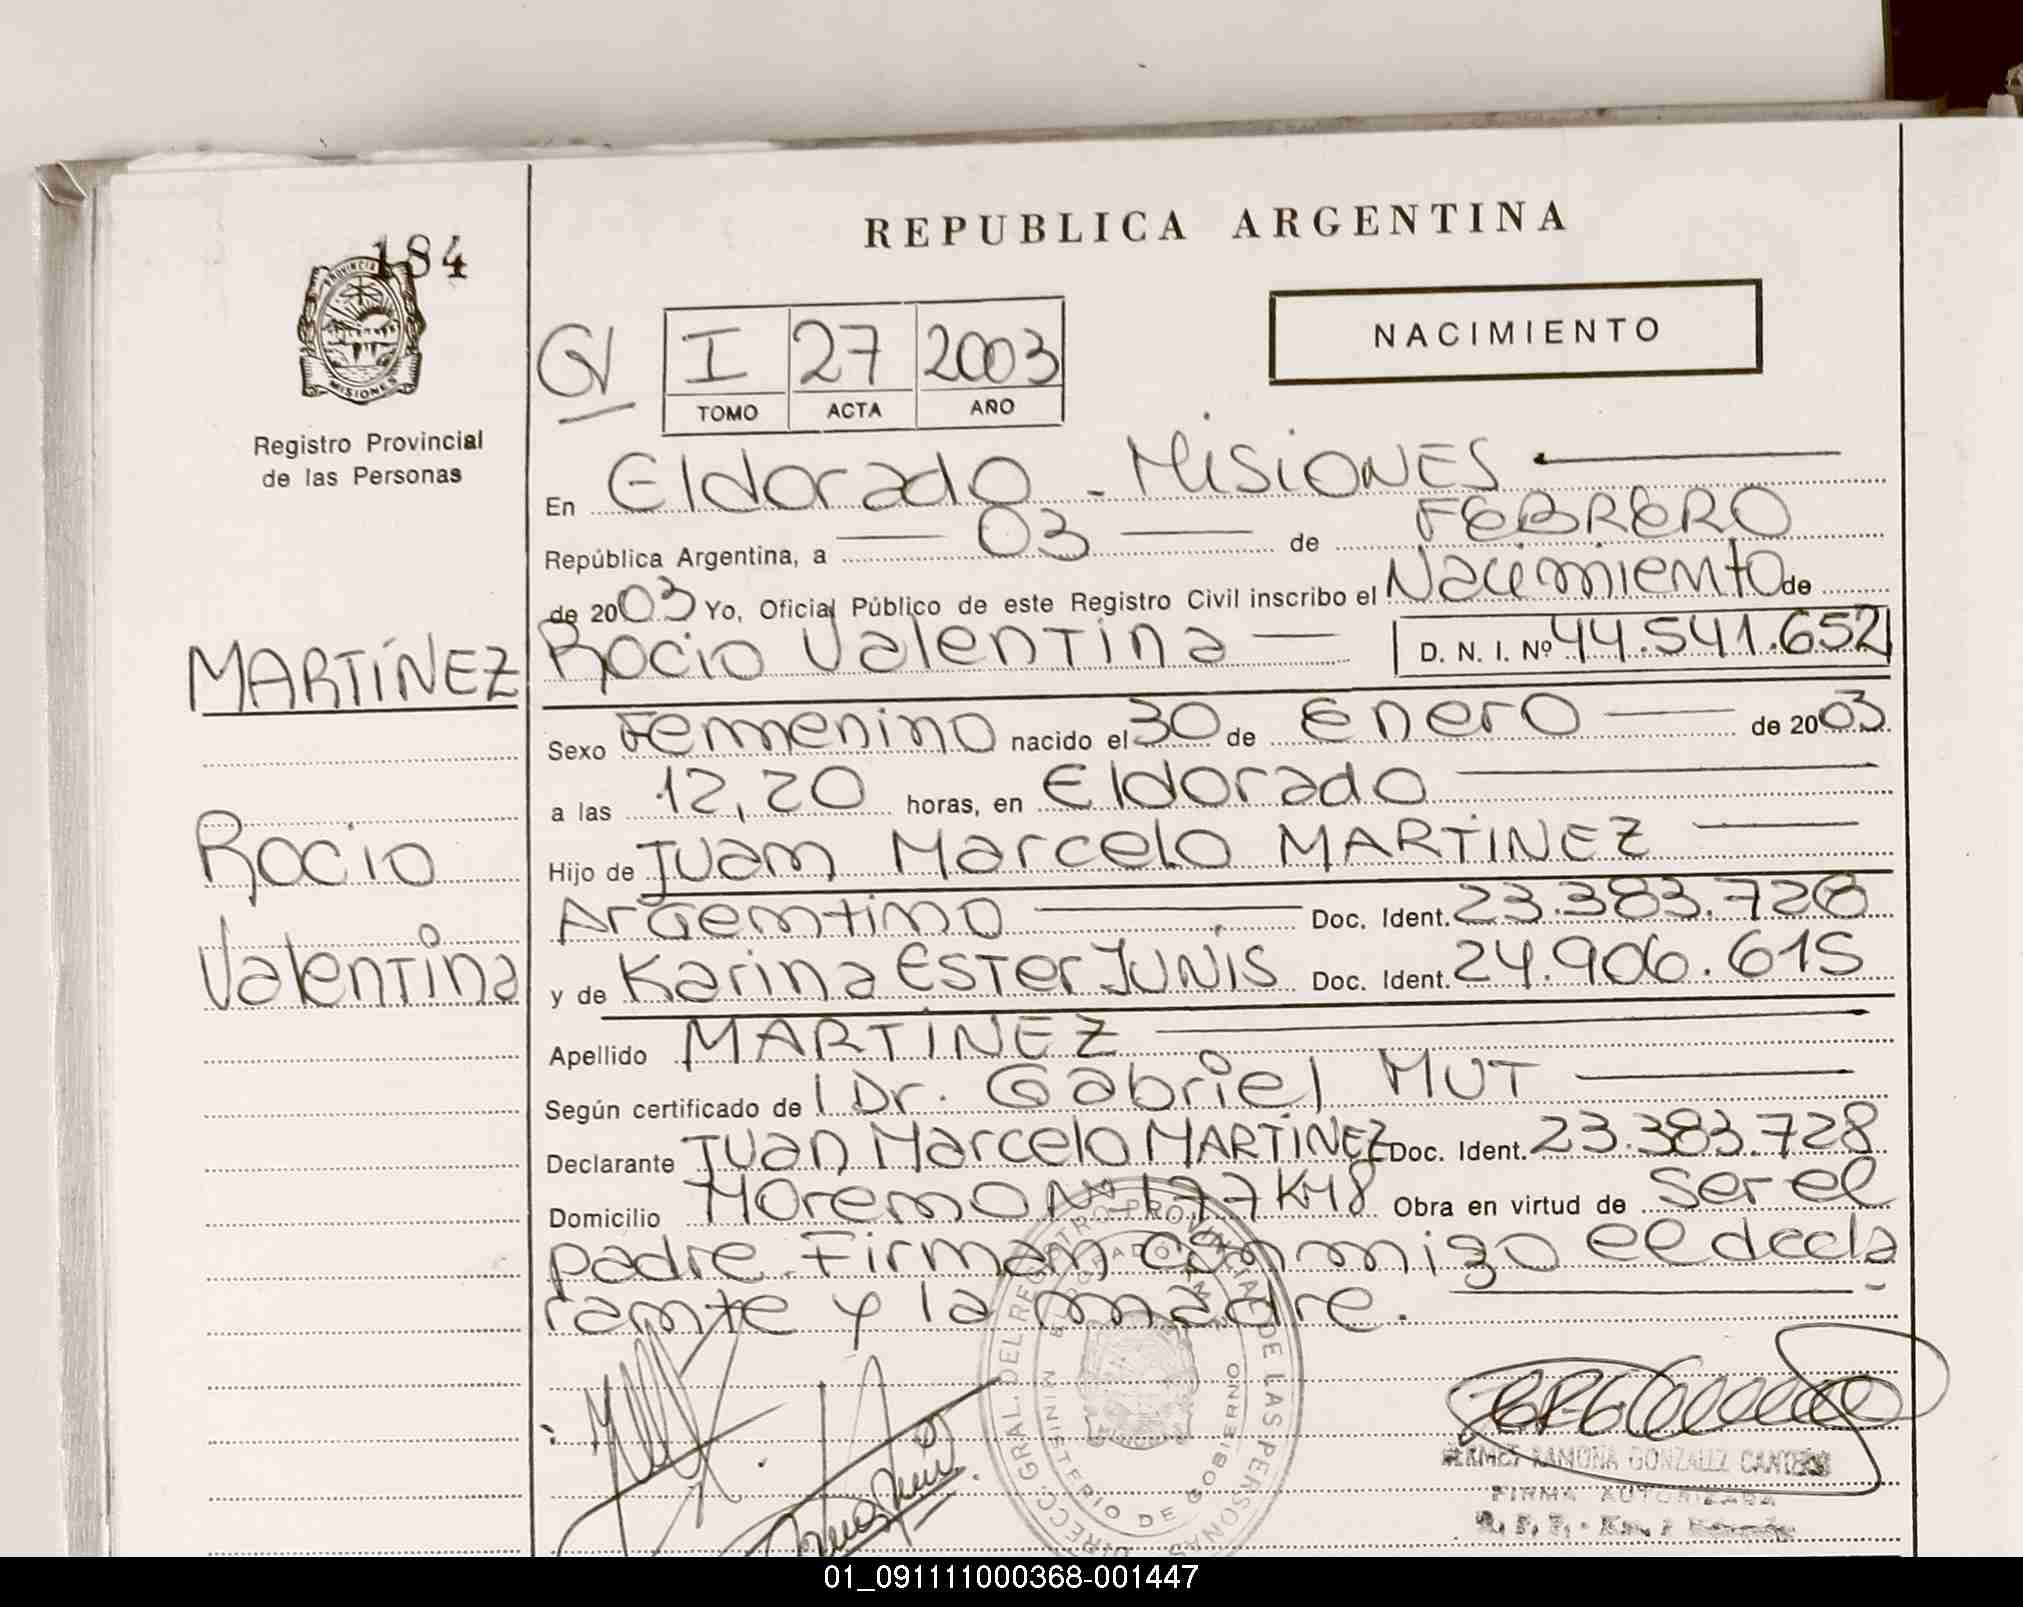 184
PROVINCIA
MISIONES
Registro Provincial
de las Personas
MARTÍNEZ
Rocio
Valentina
REPUBLICA ARGENTINA
NACIMIENTO
I 27 2003
TOMO ACTA AÑO
En Eldorado - MISIONES
República Argentina, a 03 de FEBRERO
de 2003 Yo, Oficial Público de este Registro Civil inscribo el Nacimiento de
Rocio Valentina D. N. I. Nº 44.541.652
Sexo Femenino nacido el 30 de Enero de 2003
a las 12,20 horas, en Eldorado
Hijo de Juan Marcelo MARTÍNEZ
Argentino Doc. Ident. 23.383.728
y de Karina Ester JUNIS Doc. Ident. 24.906.615
Apellido MARTÍNEZ
Según certificado de Dr. Gabriel MUT
Declarante Juan Marcelo MARTINEZ Doc. Ident. 23.383.728
Domicilio Moreno Nº 177 KM8 Obra en virtud de ser el
padre. Firman conmigo el decla
rante y la madre.
DIRECC. GRAL. DEL REGISTRO PROVINCIAL DE LAS PERSONAS
MINISTERIO DE GOBIERNO
RAMONA GONZALEZ
FIRMA AUTORIZADA
01_091111000368-001447